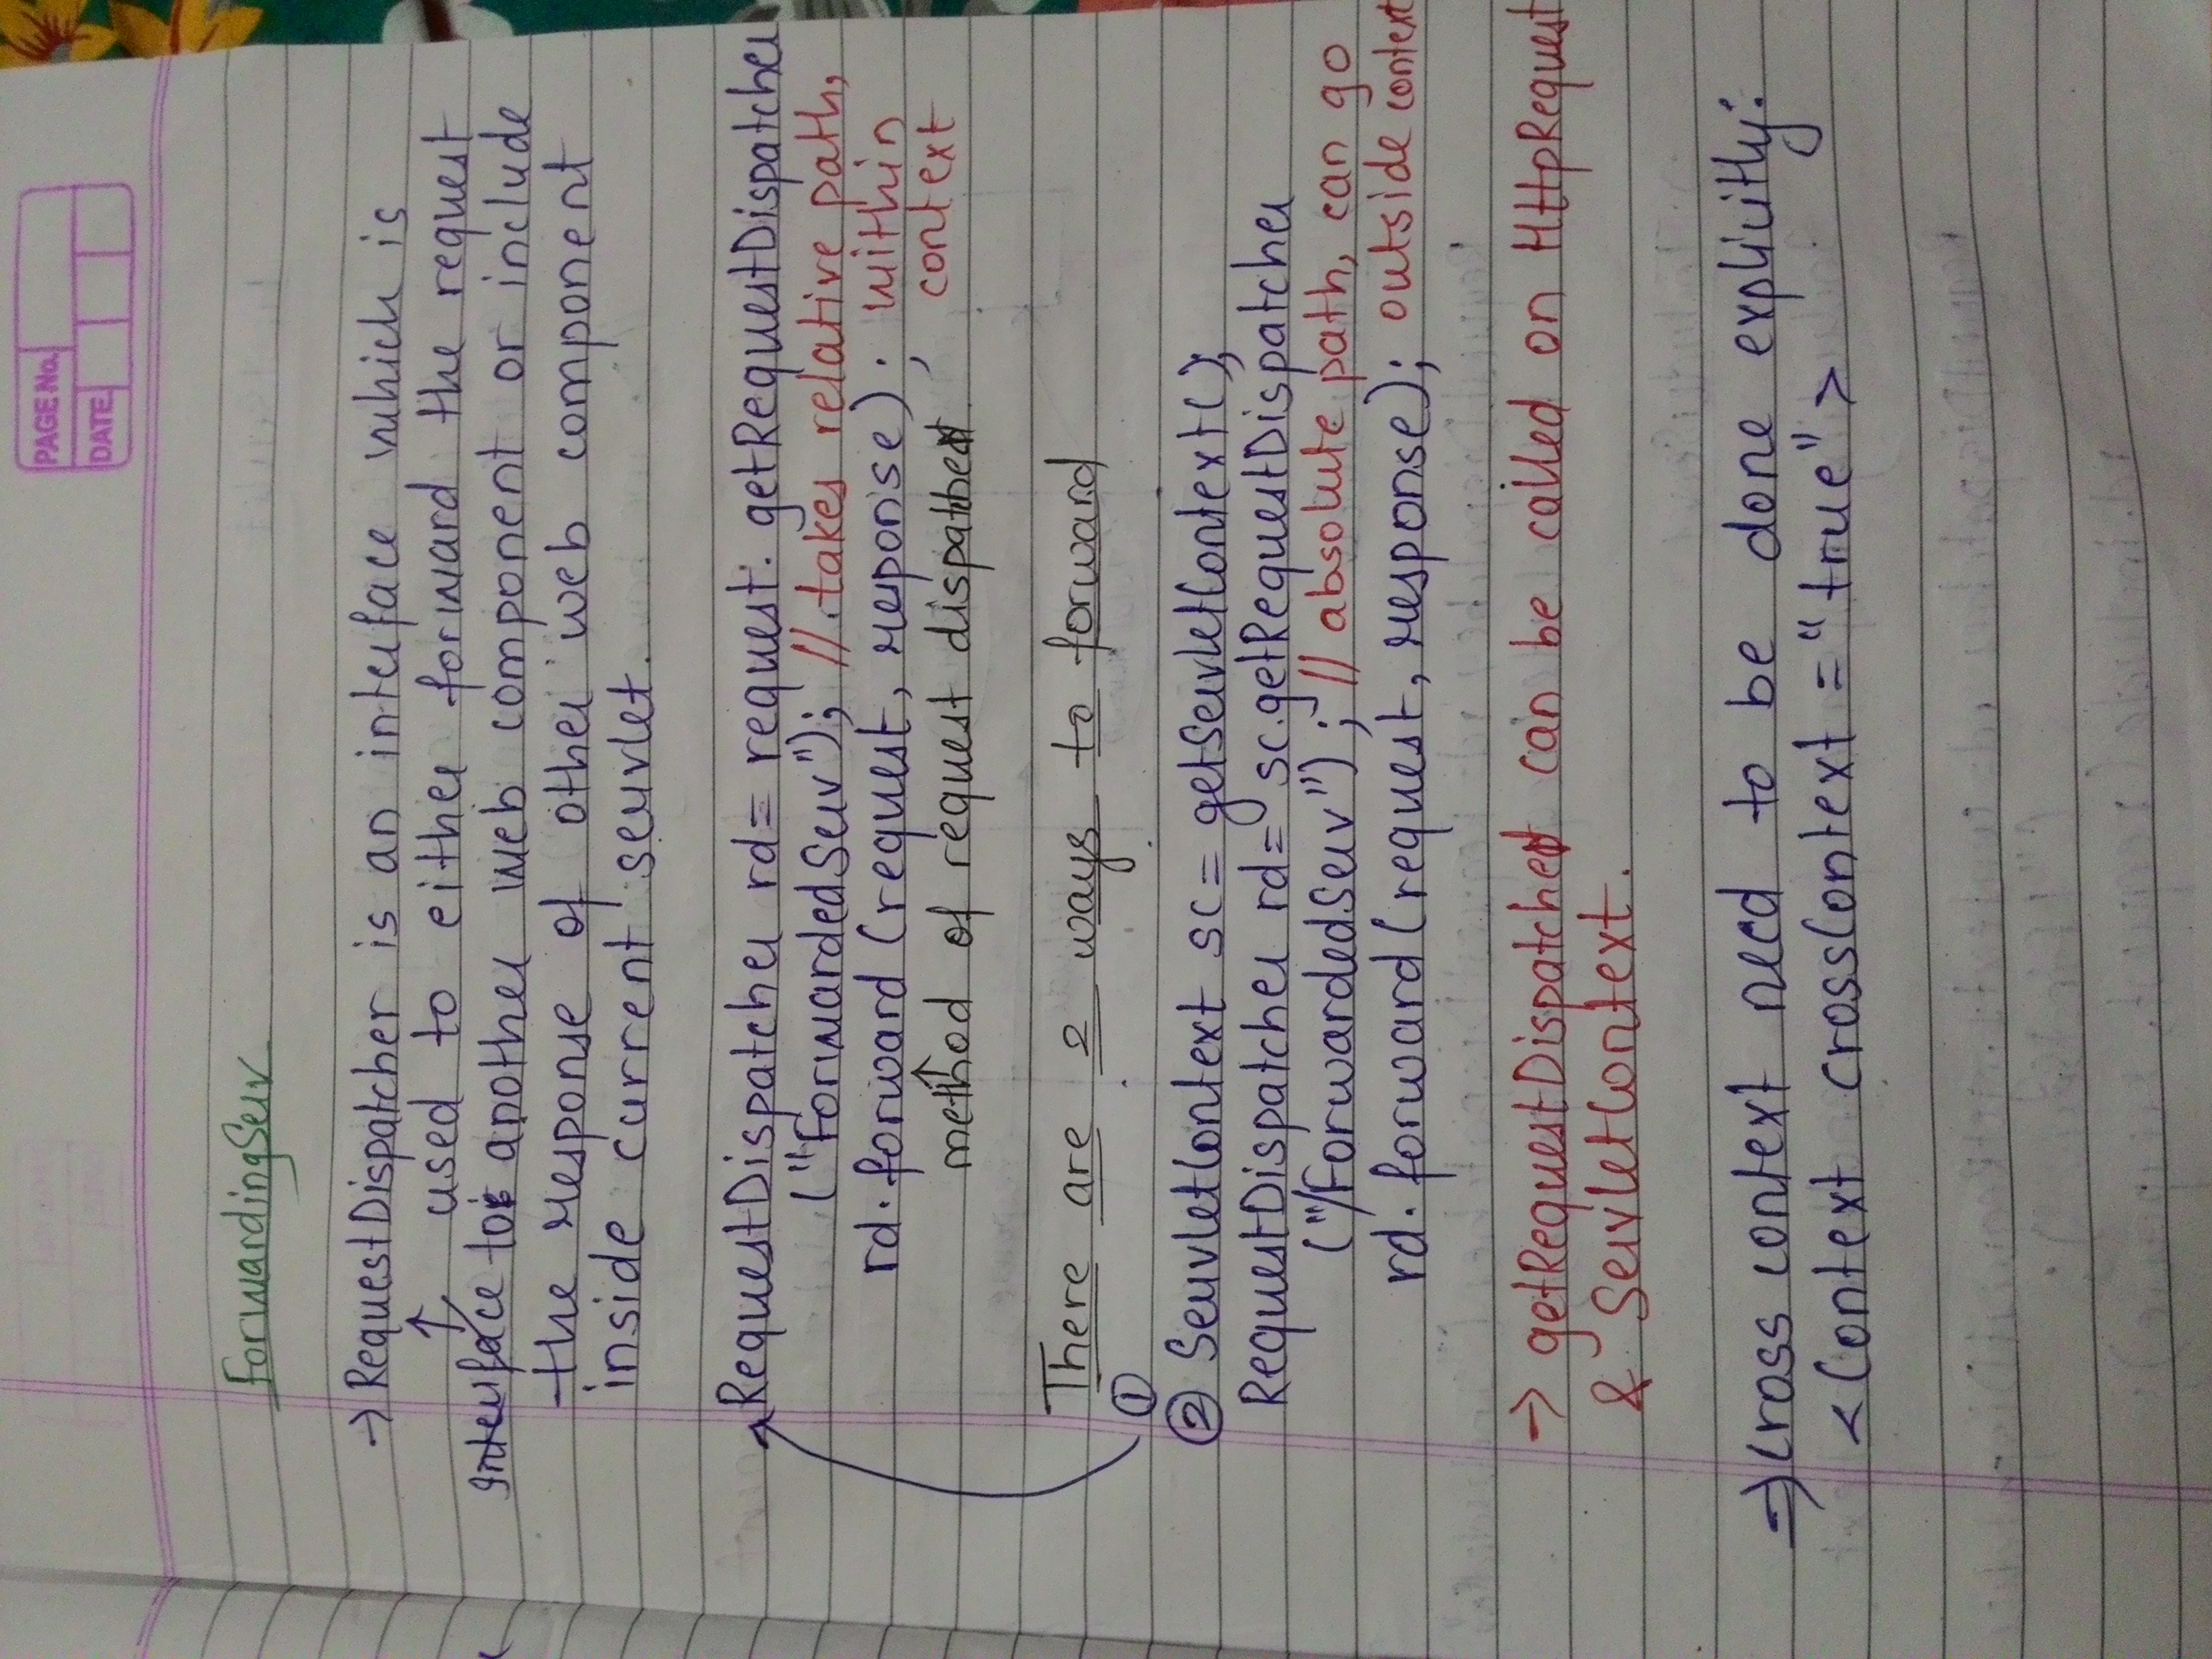 PAGE No.
DATE
ForwardingServ
→ RequestDispatcher is an interface which is
↑ used to either forward the request
Interface to another web component or include
the response of other web component
inside current servlet.
RequestDispatcher rd = request. getRequestDispatcher
("ForwardedServ"); // takes relative path,
rd. forward (request, response); within
context
↑
method of request dispatcher
There are 2 ways to forward
①
② ServletContext sc = getServletContext();
RequestDispatcher rd = sc.getRequestDispatcher
("/ForwardedServ"); // absolute path, can go
rd. forward (request, response); outside context
→ getRequestDispatcher can be called on HttpRequest
& ServletContext.
⇒ cross context need to be done explicitly:
<Context crossContext = "true" >